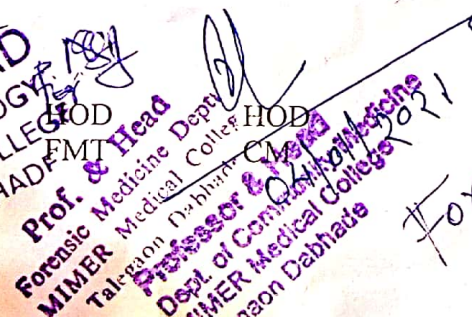 D
OGY
LLEGE
HADE
HOD
FMT
Prof. & Head
Forensic Medicine Dept
MIMER Medical College
Talegaon Dabhade
HOD
CM
Professor & Head
Dept. of Community Medicine
MIMER Medical College
gaon Dabhade
04/01/2021
For